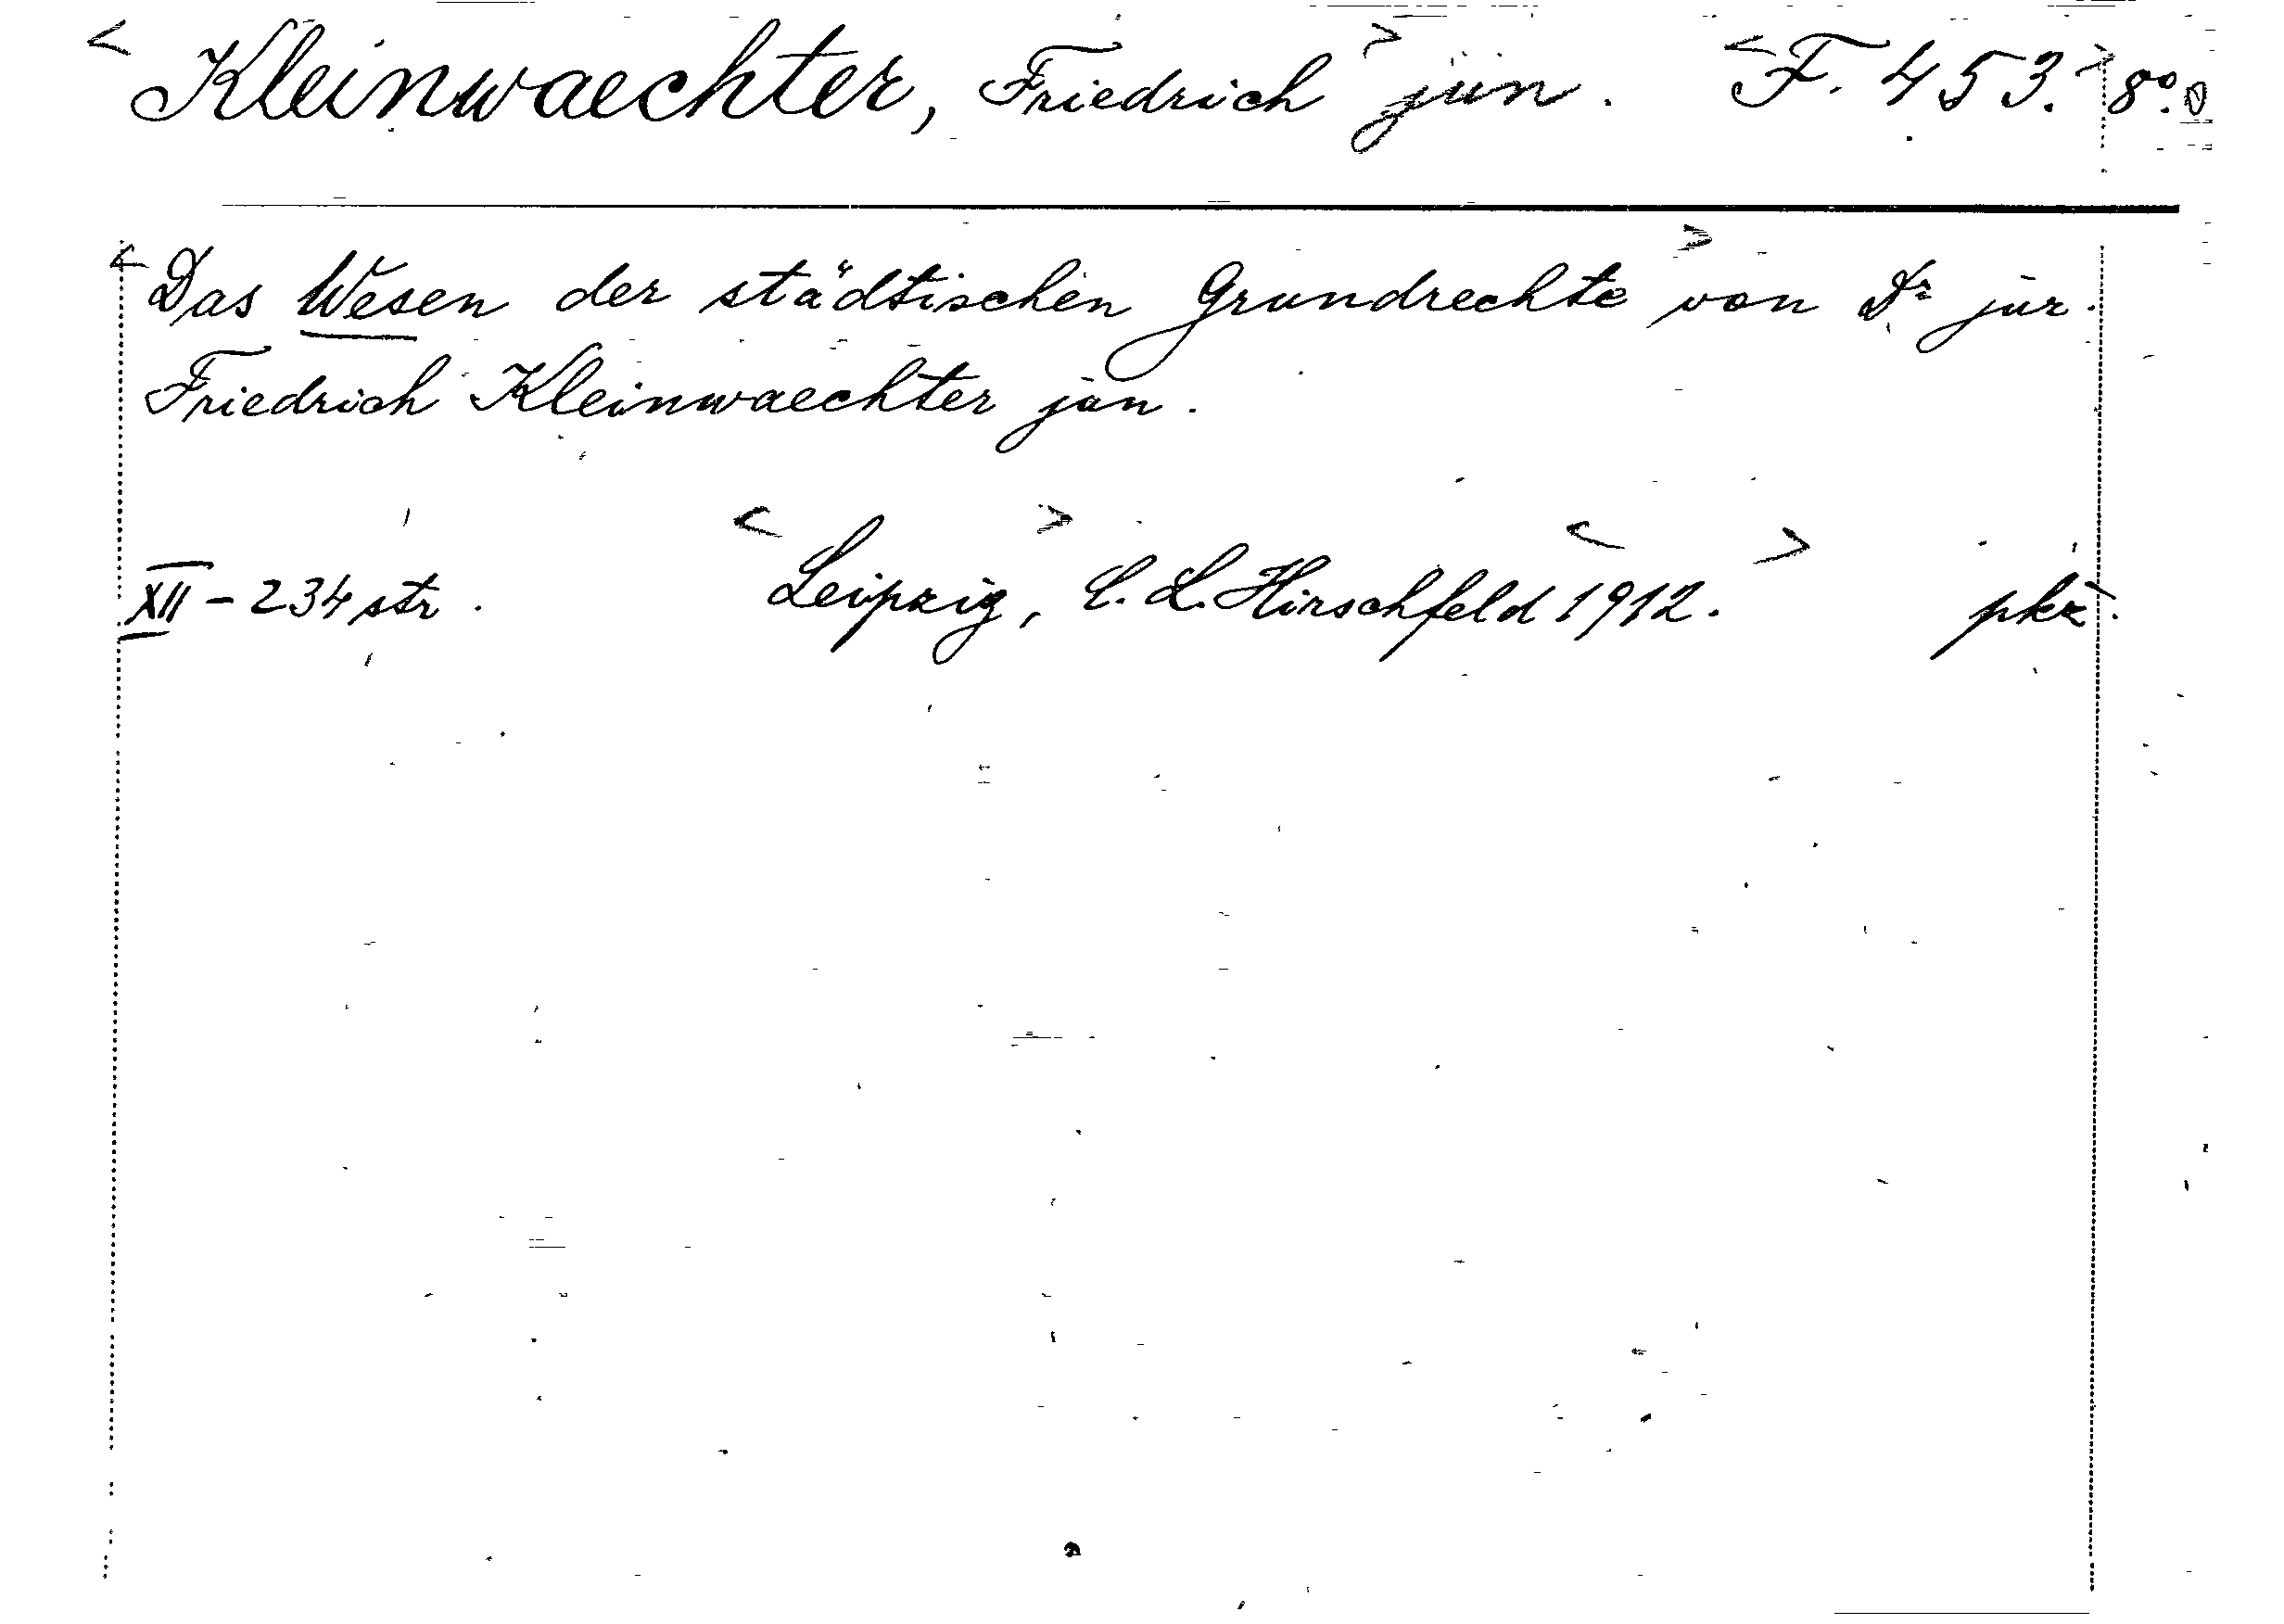 < Kleinwaechter, Friedrich > jun. < F. 453. > 8°.
< Das Wesen der städtischen Grundrechte > von Dr jur.
Friedrich Kleinwaechter jun.
XII - 234 str. < Leipzig, > C. L. Hirschfeld < 1912. > pkz.